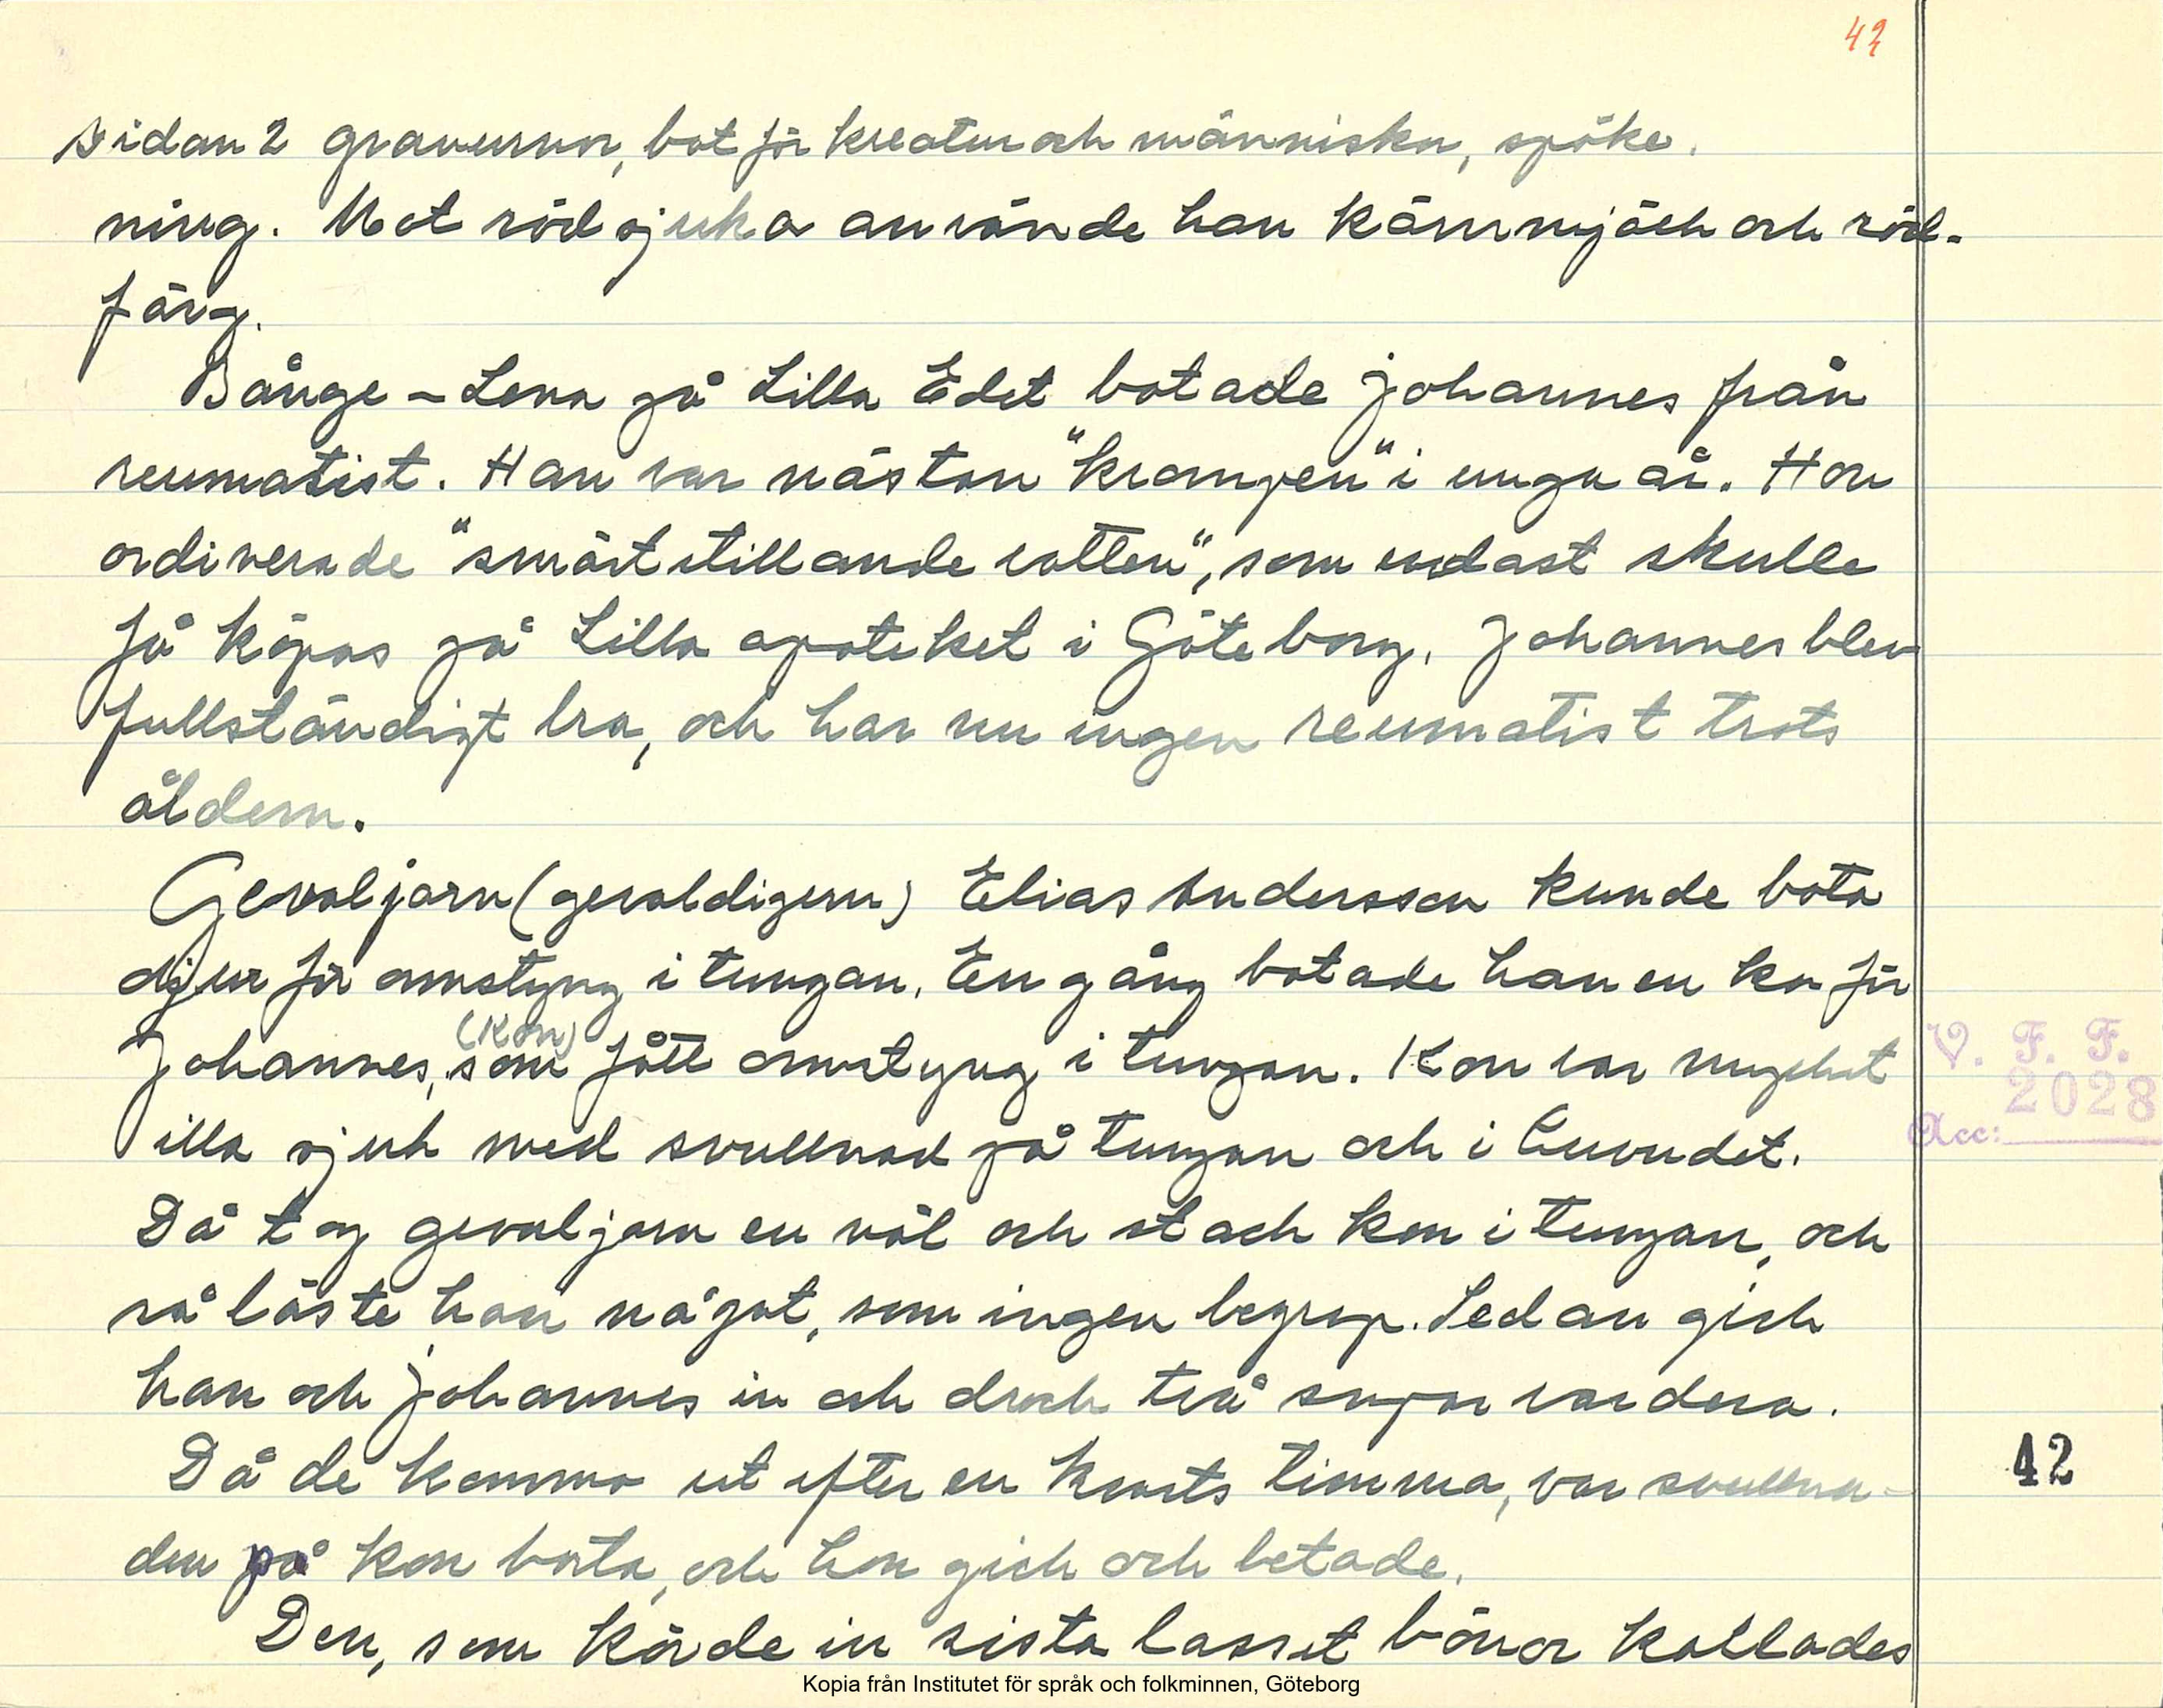 42
sidan 2 gravurnor, bot för kreatur och människor, spöke.
ning. Mot rödsjuka använde han kärnmjölk och röd-
färg.
Bånge-Lena på Lilla Edet botade Johannes från
reumatist. Han var nästan "krompen" i unga år. Hon
ordinerade "smärtstillande vatten", som endast skulle
få köpas på Lilla apoteket i Göteborg. Johannes blev
fullständigt bra, och har nu ingen reumatist trots
åldern.
Gevaljarn (gevaldigern) Elias Andersson kunde bota
djur för omstyng i tungan. En gång botade han en ko för
(Kon)
Johannes, som fått omstyng i tungan. Kon var mycket
illa sjuk med svullnad på tungan och i huvudet.
Då tog gevaljarn en nål och stack kon i tungan, och
så läste han något, som ingen begrep. Sedan gick
han och Johannes in och drack två supar vardera.
Då de kommo ut efter en kvarts timma, var svullna-
den på kon borta, och hon gick och betade.
Den, som körde in sista lasset bönor kallades
V. F. F.
2028
Acc:
42
Kopia från Institutet för språk och folkminnen, Göteborg